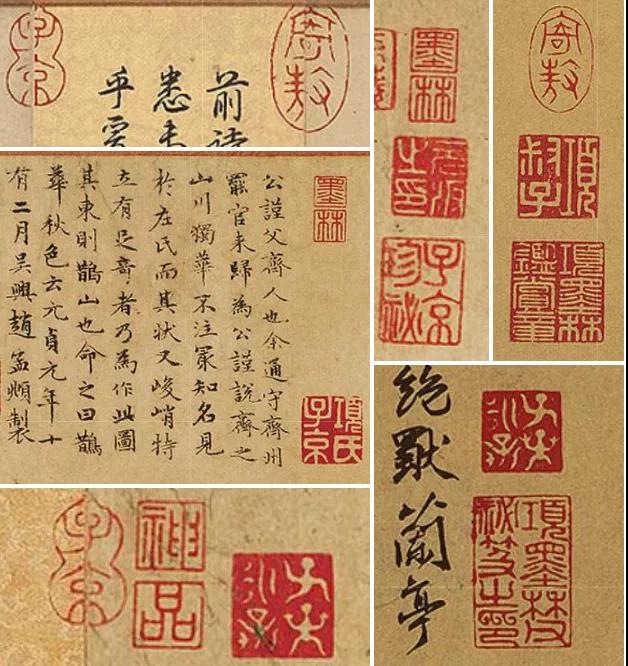 子京
寄敖
前
悉
平
墨林
公謹父齊人也余通守齊州
罷官来歸為公謹說齊之
山川獨華不注㝡知名見
於左氏而其状又峻峭特
立有足奇者乃為作此圖
其東則鵲山也命之曰鵲
華秋色云元貞元年十
有二月吳興趙孟頫製
項氏子京
墨林
之印
子京珍祕
寄敖
項叔子
項墨林鑑賞章
子京
神品
蘭亭
項墨林父祕笈之印